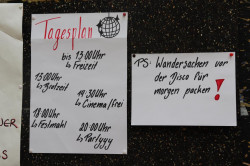 Tagesplan
bis 13:00 Uhr
↳ Freizeit
15:00 Uhr
↳ Brotzeit
19:30 Uhr
↳ Cinema/frei
18:00 Uhr
↳ Festmahl
20:00 Uhr
↳ Partyyy
PS: Wandersachen vor
der Disco für
morgen packen!